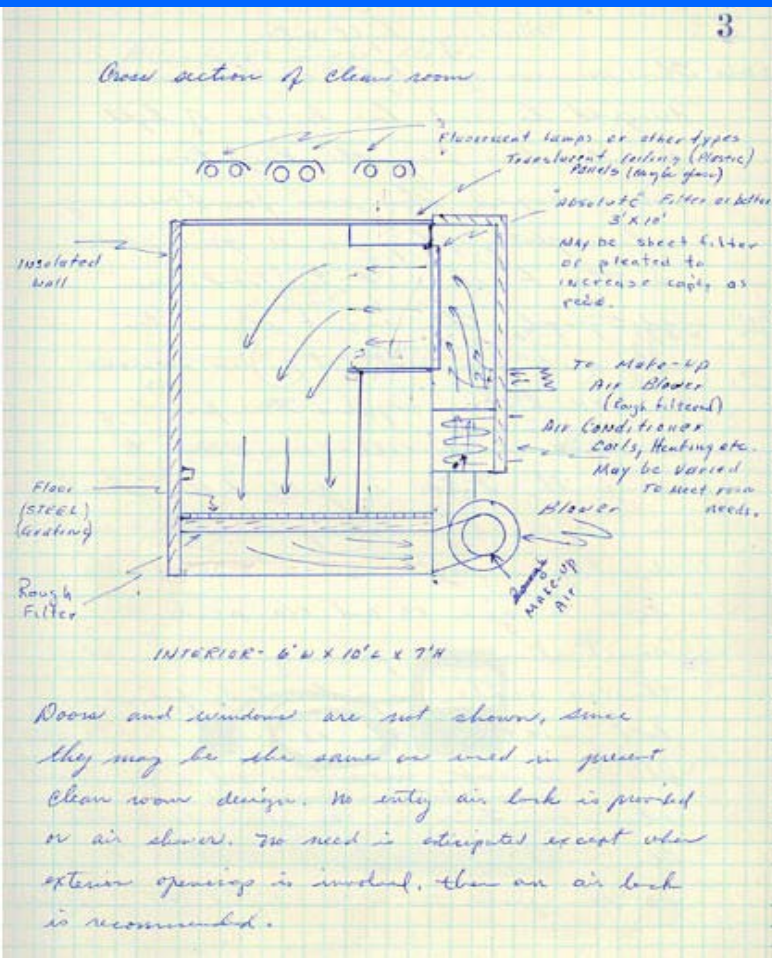 3
Cross section of clean room
Fluorescent Lamps or other types
Translucent Ceiling (Plastic)
Panels (Maybe glass)
"Absolute" Filter or better
3' x 10'
May be sheet filter
or pleated to
increase cap'y as
req'd.
Insulated
Wall
To Make-up
Air Blower
(Rough filtered)
Air Conditioner
Coils, Heating etc.
May be varied
To meet room
needs.
Floor
(STEEL)
(Grating)
Blower
Rough
Filter
Make-up
Air
INTERIOR - 6' W x 10' L x 7' H
Doors and windows are not shown, since
they may be the same as used in present
clean room design. No entry air lock is provided
or air shower. No need is anticipated except when
exterior openings is involved, then an air lock
is recommended.